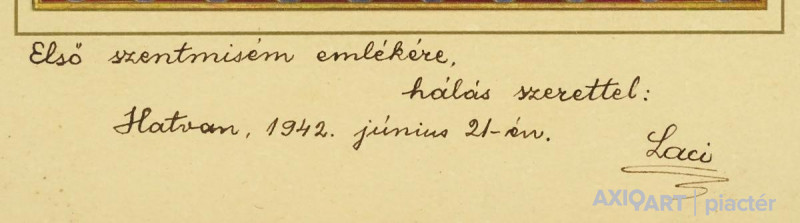 Első szentmisém emlékére,
hálás szerettel:
Hatvan, 1942. június 21-én.
Laci
AXIOART | piactér